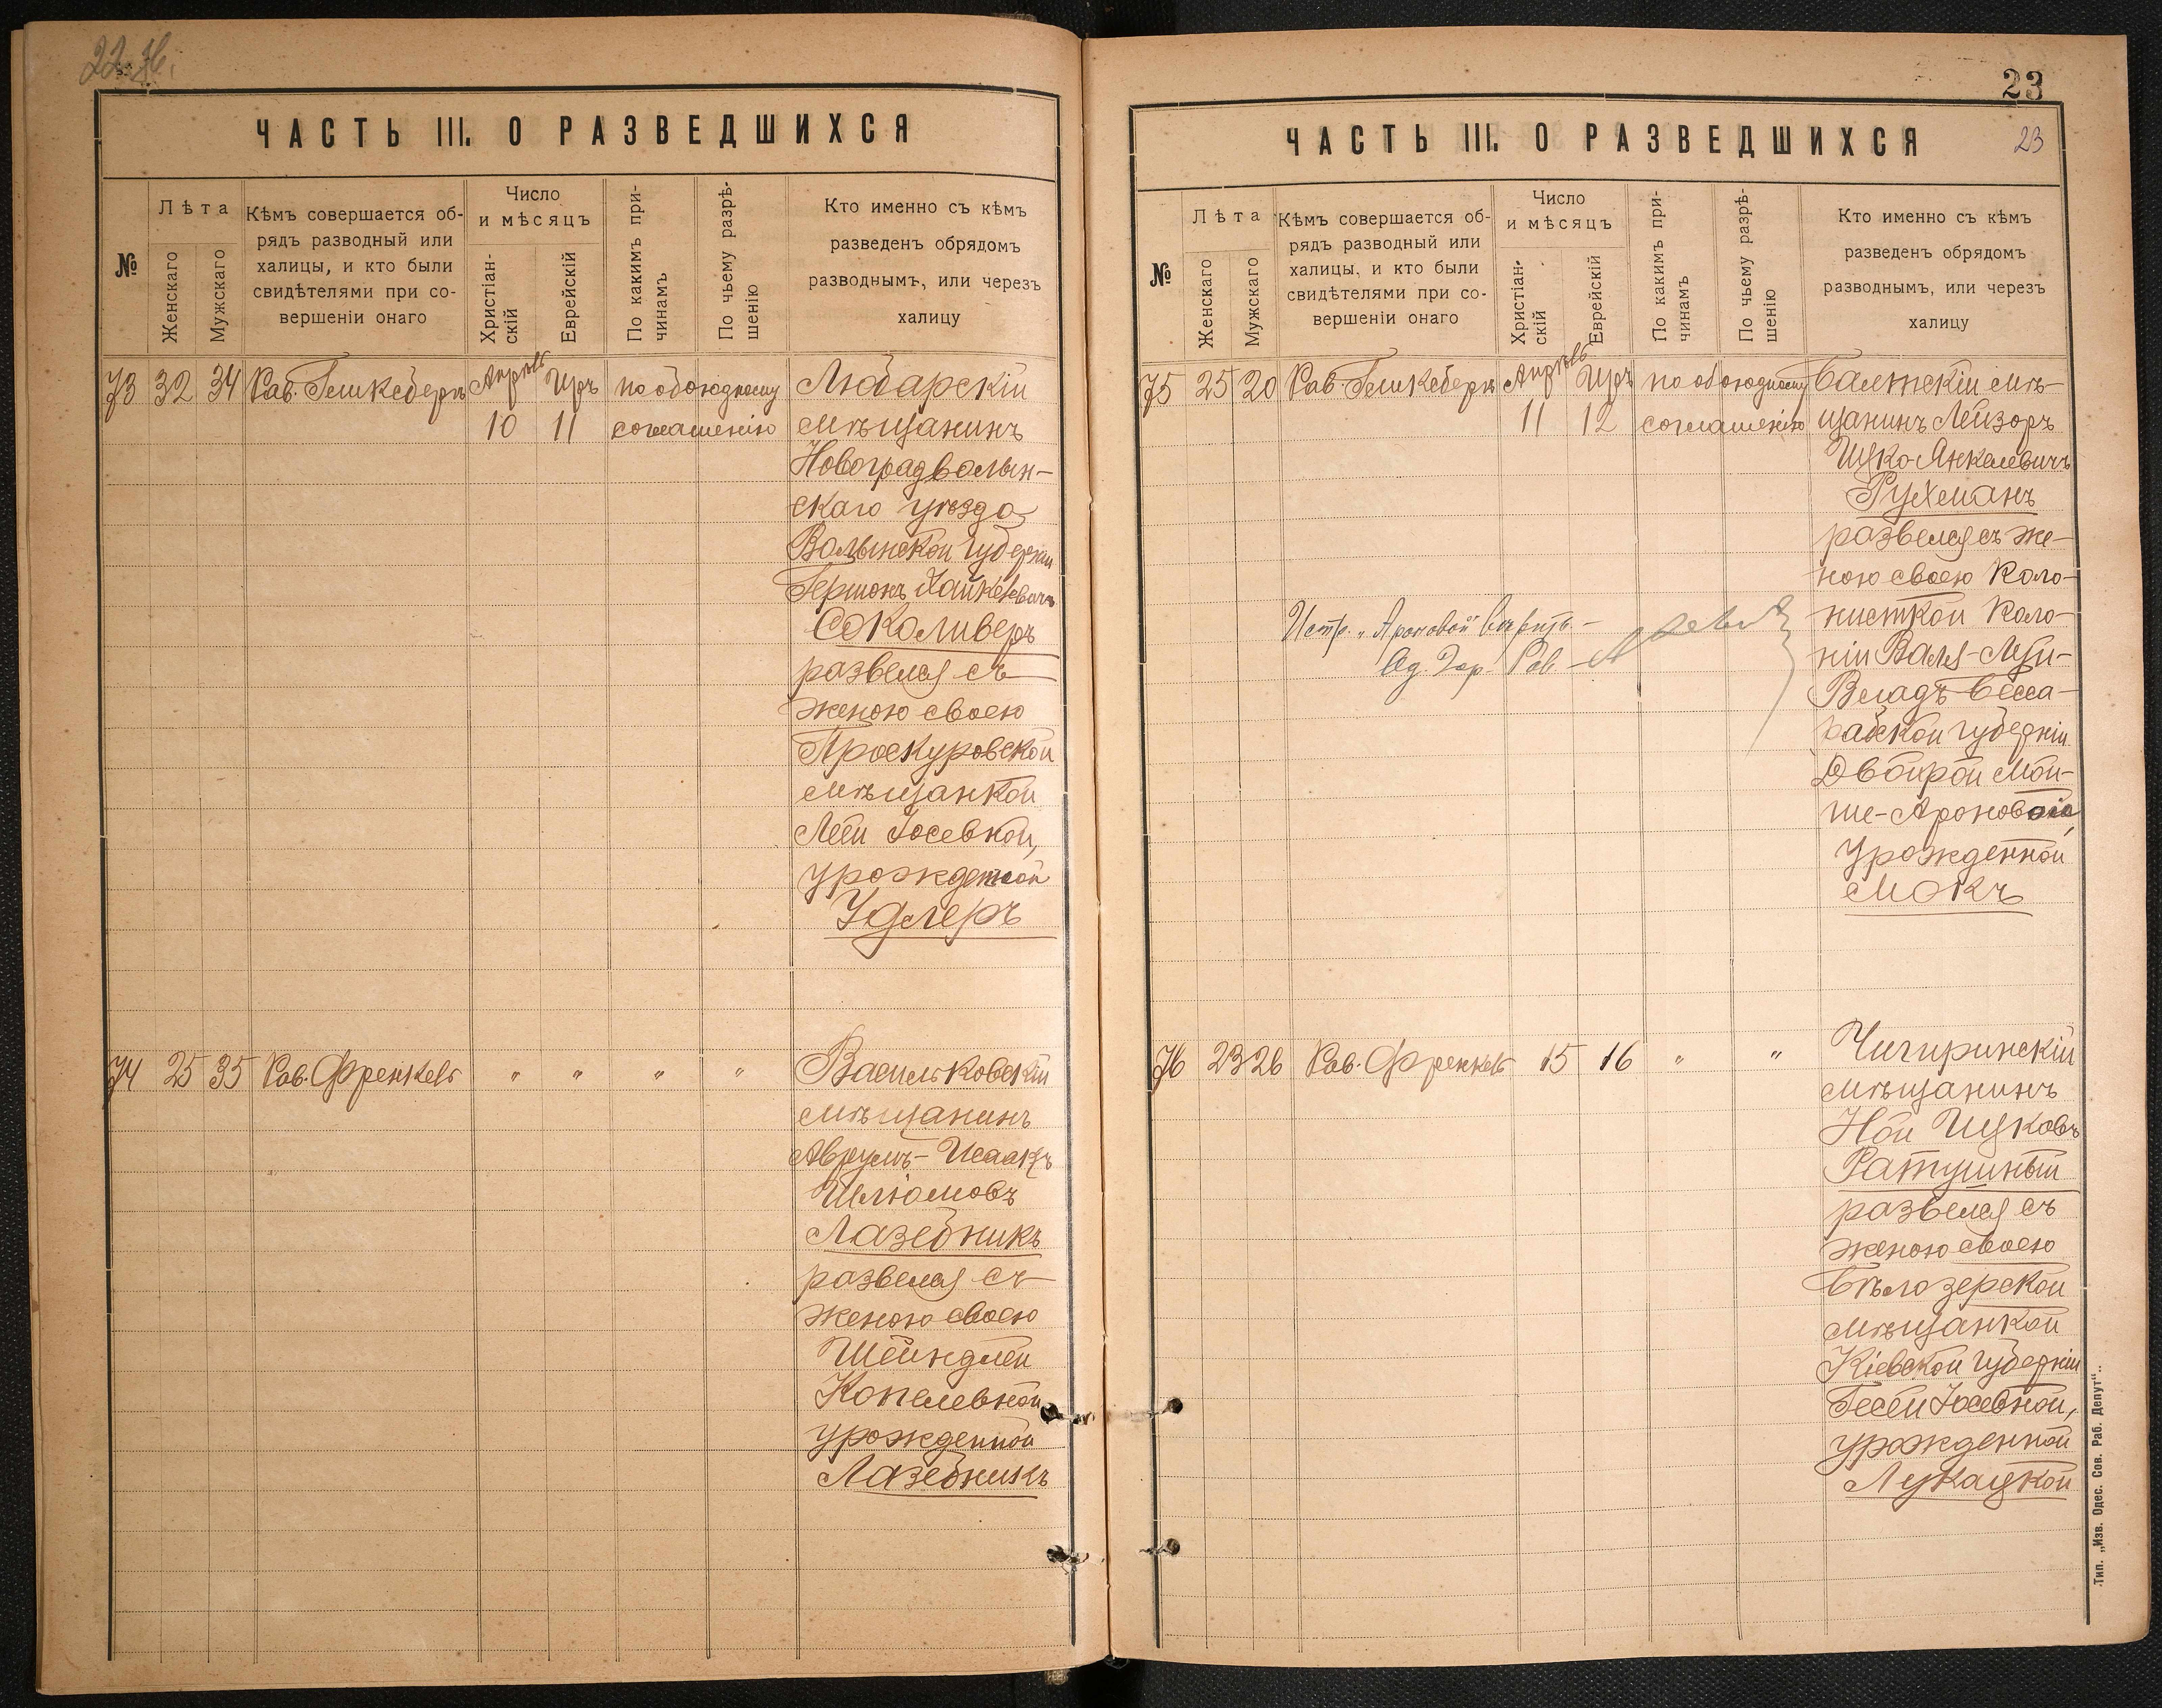 22
ЧАСТЬ III. О РАЗВЕДШИХСЯ
№
Лѣта
Женскаго
Мужскаго
Кѣмъ совершается об-
рядъ разводный или
халицы, и кто были
свидѣтелями при со-
вершеніи онаго
Число
и мѣсяцъ
Христіан-
скій
Еврейскій
По какимъ при-
чинамъ
По чьему разрѣ-
шенію
Кто именно съ кѣмъ
разведенъ обрядомъ
разводнымъ, или черезъ
халицу
73 32 34 Рав. Апрѣль Иръ по обоюдному Любарскій
10 11 соглашенію мѣщанинъ
Новоградволын-
скаго уѣзда
Волынской губерніи
Гершонъ
Соколиверъ
развелся съ
женою своею
Проскуровской
мѣщанкой
Леей Іосевной,
урожденной
Удлеръ
74 25 35 Рав. Френкель " " " " Васильковскій
мѣщанинъ
Аврумъ-Исаакъ
Шліомовъ
Лазебникъ
развелся съ
женою своею
Шейндлей
Копелевной
урожденной
Лазебникъ
23
ЧАСТЬ III. О РАЗВЕДШИХСЯ
23
№
Лѣта
Женскаго
Мужскаго
Кѣмъ совершается об-
рядъ разводный или
халицы, и кто были
свидѣтелями при со-
вершеніи онаго
Число
и мѣсяцъ
Христіан-
скій
Еврейскій
По какимъ при-
чинамъ
По чьему разрѣ-
шенію
Кто именно съ кѣмъ
разведенъ обрядомъ
разводнымъ, или черезъ
халицу
75 25 20 Рав. Апрѣль Иръ по обоюдному Балтскій мѣ-
11 12 соглашенію щанинъ Лейзоръ
Ицко Янкелевичъ
Рухманъ
развелся съ же-
ною своею коло-
нисткой коло-
ніи Валя-Луй-
Владъ Бесса-
рабской губерніи
Двойрой Мой-
ше-Ароновой,
урожденной
Мокъ
Испр. „Ароновой" вѣрить.-
Од. Гор. Рав.
76 23 26 Рав. Френкель 15 16 " " Чигиринскій
мѣщанинъ
Ной Ицковъ
Ратушный
развелся съ
женою своею
Бѣлозерской
мѣщанкой
Кіевской губерніи
Песей Іосевной,
урожденной
Лукацкой
Тип. „Изв. Одес. Сов. Раб. Депут".